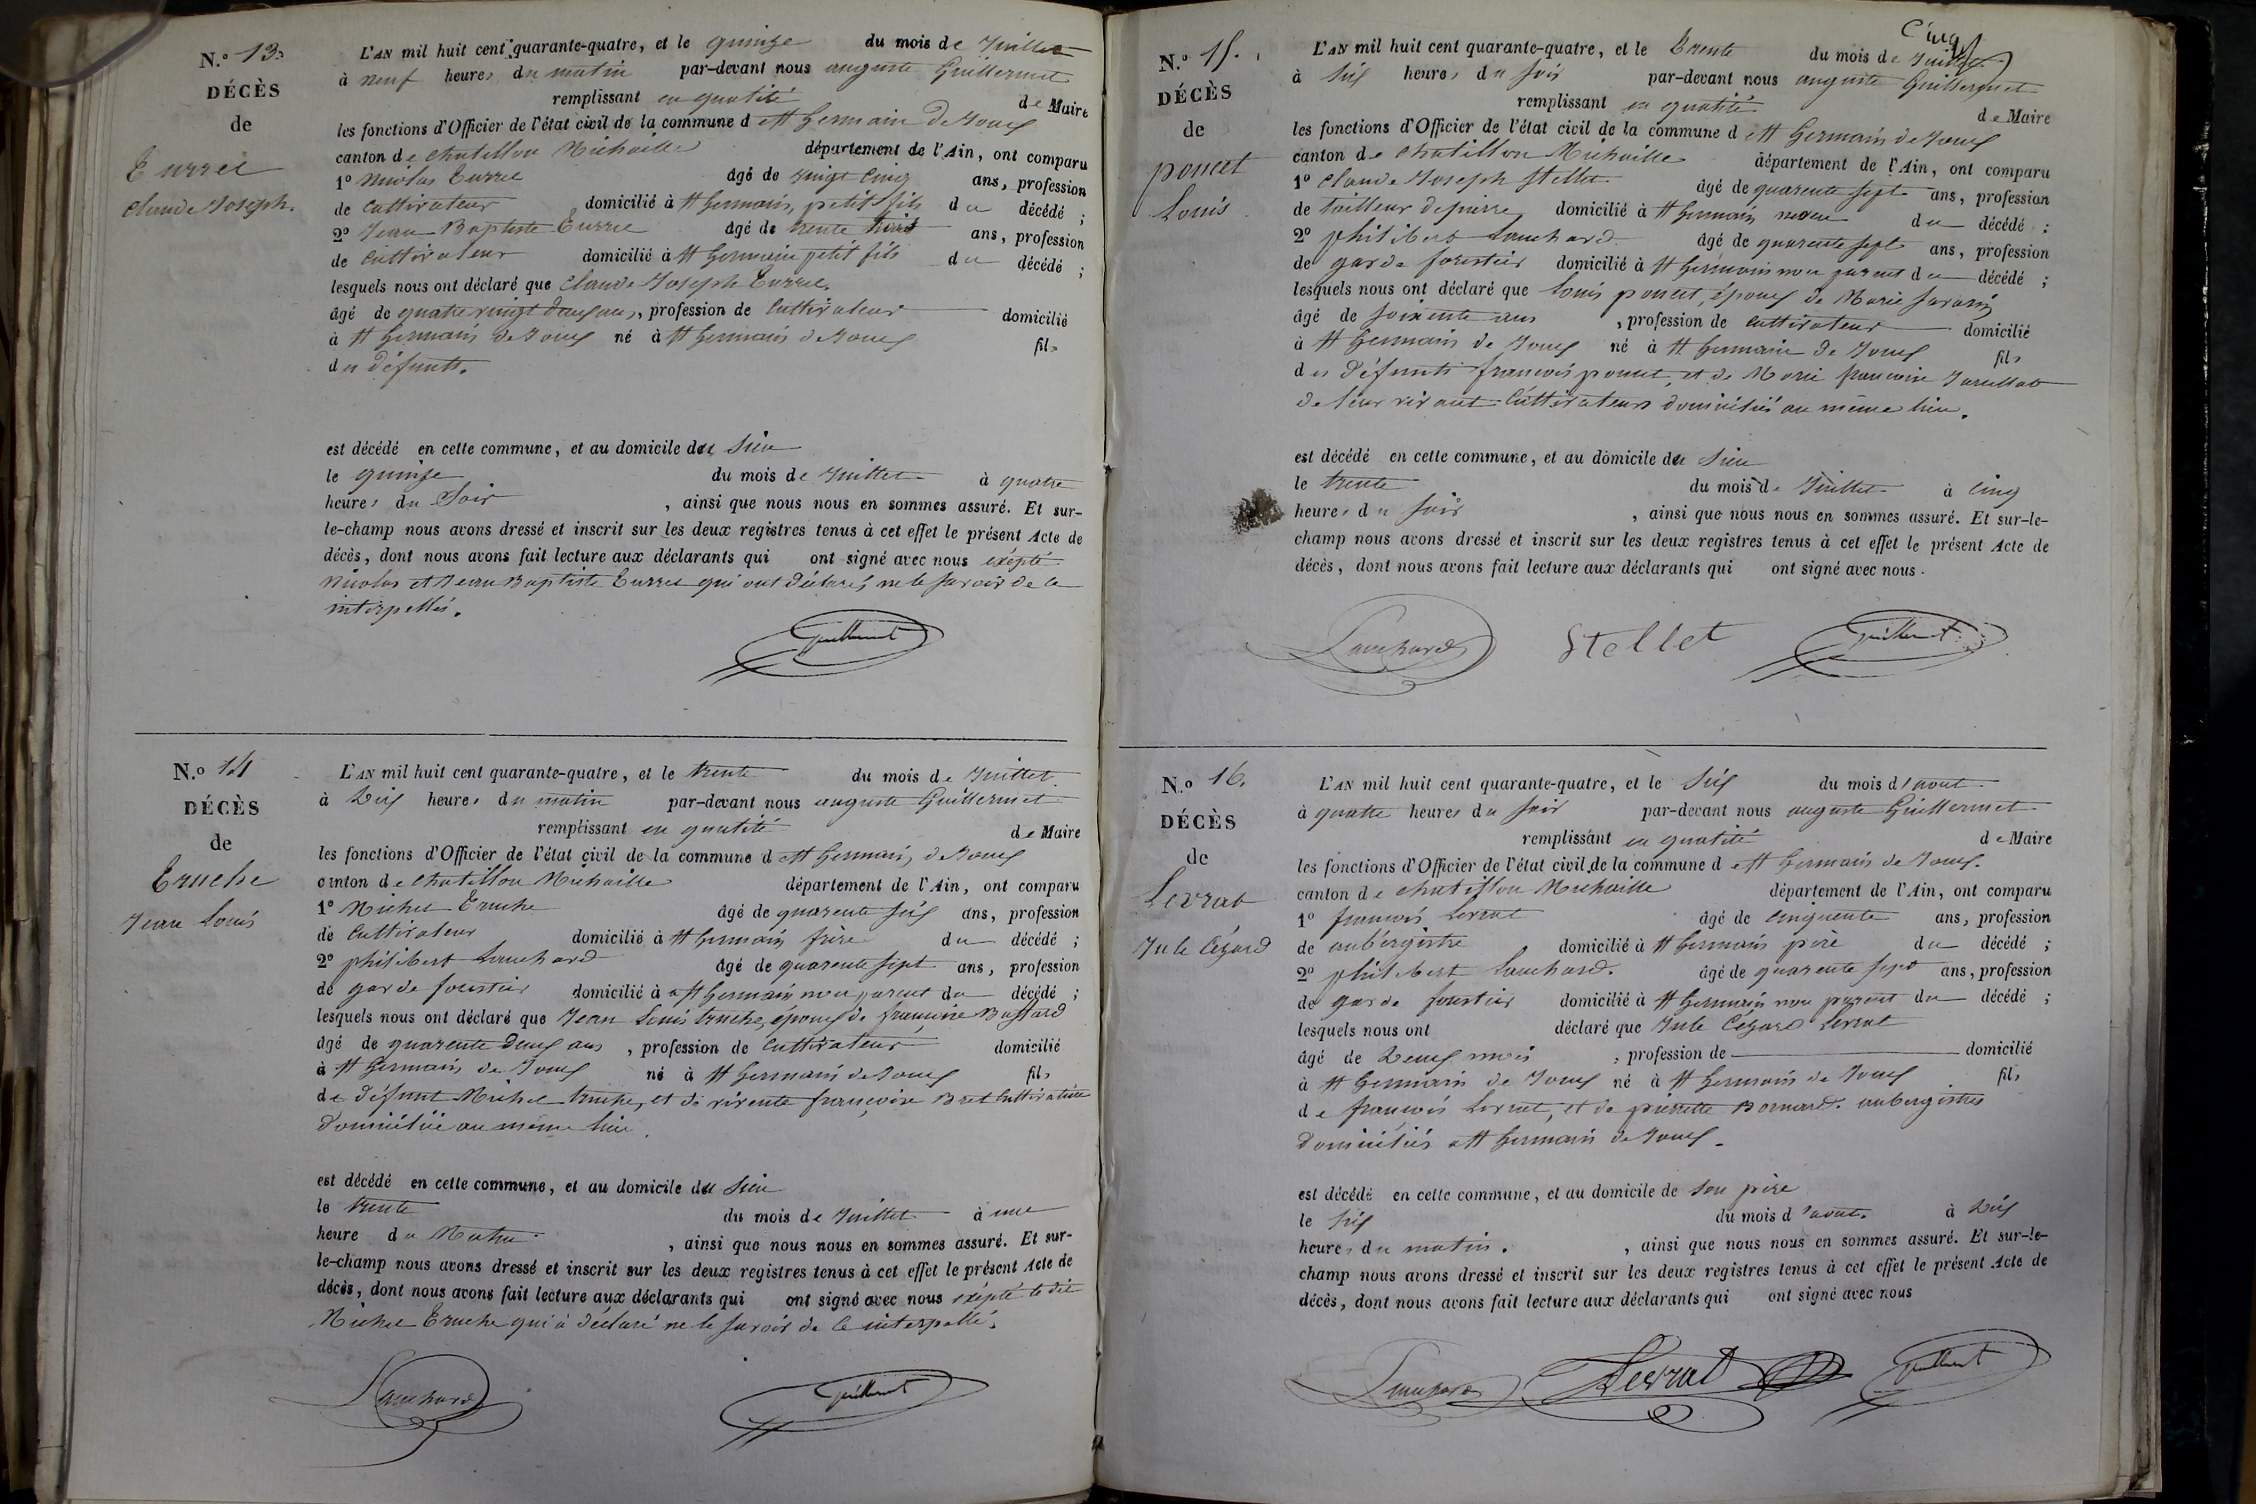 N.º 13.
DÉCÈS
de
Eurrie
Claude Joseph.
L'AN mil huit cent quarante-quatre, et le quinze du mois de Juillet
à neuf heures du matin par-devant nous auguste Guillermet
remplissant en qualité de Maire
les fonctions d'Officier de l'état civil de la commune de St Germain de Joux
canton de Chatillon Michaille département de l'Ain, ont comparu
1º Nicolas âgé de vingt cinq ans, profession
de Cultivateur domicilié à St Germain, petit fils du décédé ;
2º Jean Baptiste âgé de trente ans, profession
de Cultivateur domicilié à St Germain petit fils du décédé ;
lesquels nous ont déclaré que Claude Joseph
âgé de quatre vingt deux ans, profession de Cultivateur domicilié
à St Germain de Joux né à St Germain de Joux fils
des défunts.
est décédé en cette commune, et au domicile du sien
le quinze du mois de Juillet à quatre
heures du Soir , ainsi que nous nous en sommes assuré. Et sur-
le-champ nous avons dressé et inscrit sur les deux registres tenus à cet effet le présent Acte de
décès, dont nous avons fait lecture aux déclarants qui ont signé avec nous exépté
Nicolas et Jean Baptiste qui ont déclarés ne le savoir de ce
interpellés.
Guillermet
N.º 14
DÉCÈS
de
Truche
Jean Louis
L'AN mil huit cent quarante-quatre, et le trente du mois de Juillet
à Dix heures du matin par-devant nous auguste Guillermet
remplissant en qualité de Maire
les fonctions d'Officier de l'état civil de la commune de St Germain de Joux
canton de Chatillon Michaille département de l'Ain, ont comparu
1º Michel Truche âgé de quarente six ans, profession
de Cultivateur domicilié à St Germain frère du décédé ;
2º philibert Louchard âgé de quarente sept ans, profession
de garde forestier domicilié à St Germain non parent du décédé ;
lesquels nous ont déclaré que Jean Louis truche, époux de françoise
âgé de quarente deux ans , profession de Cultivateur domicilié
à St Germain de Joux né à St Germain de Joux fils
de défunt Michel truche, et de vivente françoise Cultivatrice
Domiciliée au même lieu.
est décédé en cette commune, et au domicile du sien
le trente du mois de Juillet à une
heure du Matin , ainsi que nous nous en sommes assuré. Et sur-
le-champ nous avons dressé et inscrit sur les deux registres tenus à cet effet le présent Acte de
décès, dont nous avons fait lecture aux déclarants qui ont signé avec nous exépté le dit
Michel Truche qui à déclaré ne le savoir de ce interpellé.
Louchard Guillermet
Cinq
N.º 15.
DÉCÈS
de
poncet
Louis
L'AN mil huit cent quarante-quatre, et le Trente du mois de Juillet
à six heures du soir par-devant nous auguste Guillermet
remplissant en qualité de Maire
les fonctions d'Officier de l'état civil de la commune de St Germain de Joux
canton de Chatillon Michaille département de l'Ain, ont comparu
1º Claude Joseph Stellet âgé de quarente sept ans, profession
de tailleur de pierre domicilié à St Germain neveu du décédé ;
2º philibert Louchard âgé de quarente sept ans, profession
de garde forestier domicilié à St Germain non parent du décédé ;
lesquels nous ont déclaré que Louis poncet, époux de Marie
âgé de soixente ans , profession de Cultivateur domicilié
à St Germain de Joux né à St Germain de Joux fils
des défunts françois poncet, et de Marie françoise
de leur vivant Cultivateurs domiciliés au même lieu.
est décédé en cette commune, et au domicile du sien
le trente du mois de Juillet à Cinq
heures du soir , ainsi que nous nous en sommes assuré. Et sur-le-
champ nous avons dressé et inscrit sur les deux registres tenus à cet effet le présent Acte de
décès, dont nous avons fait lecture aux déclarants qui ont signé avec nous.
Louchard Stellet Guillermet
N.º 16.
DÉCÈS
de
Levrat
Jule Cézard
L'AN mil huit cent quarante-quatre, et le six du mois d'aout
à quatre heures du soir par-devant nous auguste Guillermet
remplissant en qualité de Maire
les fonctions d'Officier de l'état civil de la commune de St Germain de Joux.
canton de Chatillon Michaille département de l'Ain, ont comparu
1º françois Levrat âgé de Cinquente ans, profession
de aubergistre domicilié à St Germain père du décédé ;
2º philibert Louchard. âgé de quarente sept ans, profession
de garde forestier domicilié à St Germain non parent du décédé ;
lesquels nous ont déclaré que Jule Cézard Levrat
âgé de Deux mois , profession de domicilié
à St Germain de Joux né à St Germain de Joux fils
de françois Levrat, et de pierrette Bornard. aubergistres
Domiciliés à St Germain de Joux.
est décédé en cette commune, et au domicile de son père
le six du mois d'aout. à Dix
heures du matin. , ainsi que nous nous en sommes assuré. Et sur-le-
champ nous avons dressé et inscrit sur les deux registres tenus à cet effet le présent Acte de
décès, dont nous avons fait lecture aux déclarants qui ont signé avec nous
Louchard Levrat Guillermet